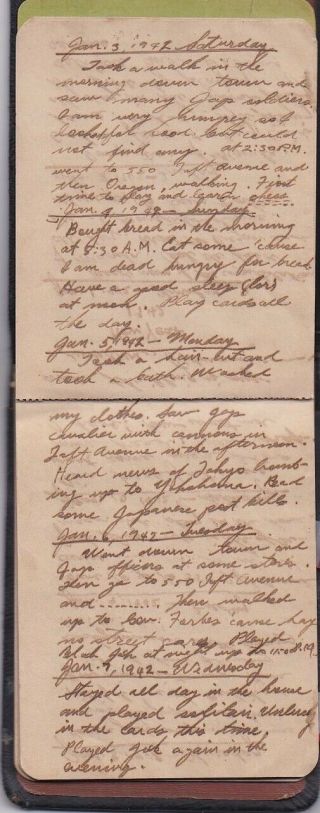 Jan. 3, 1942 Saturday
Took a walk in the
morning down town and
saw many Japs soldiers.
I am very hungry so I
looked for food but could
not find any. at 2:30 P.M.
went to 550 Taft Avenue and
then Oregon, walking. First
time to play and learn
Jan. 4, 1942 - Sunday
Bought bread in the morning
at 8:30 A.M. Eat some 'cause
I am dead hungry for bread.
Have a good sleep
at noon. Play cards all
the day.
Jan. 5, 1942 - Monday
Took a hair-cut and
took a bath. Washed
my clothes. Saw Japs
cavalier with cannons in
Taft Avenue in the afternoon.
Heard news of Tokyo bomb-
ing up to Yokohama. Read
some Japanese post bills.
Jan. 6, 1942 - Tuesday
Went down town and
Japs officers at some stores.
Then go to 550 Taft Avenue
and ........ then walked
up to Gov. Forbes 'cause
no street cars. Played
Black Jack at night up to
Jan. 7, 1942 - Wednesday
Stayed all day in the house
and played solitair. Unlucky
in the cards this time.
Played again in the
evening.